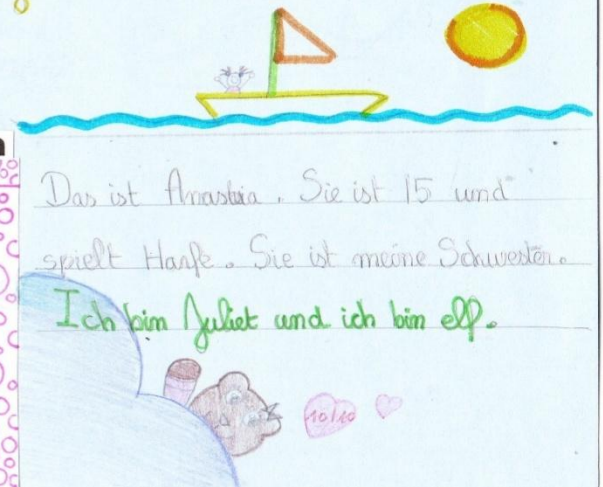 Das ist Anastasia. Sie ist 15 und
spielt Harfe. Sie ist meine Schwester.
Ich bin Juliet und ich bin elf.
10/10